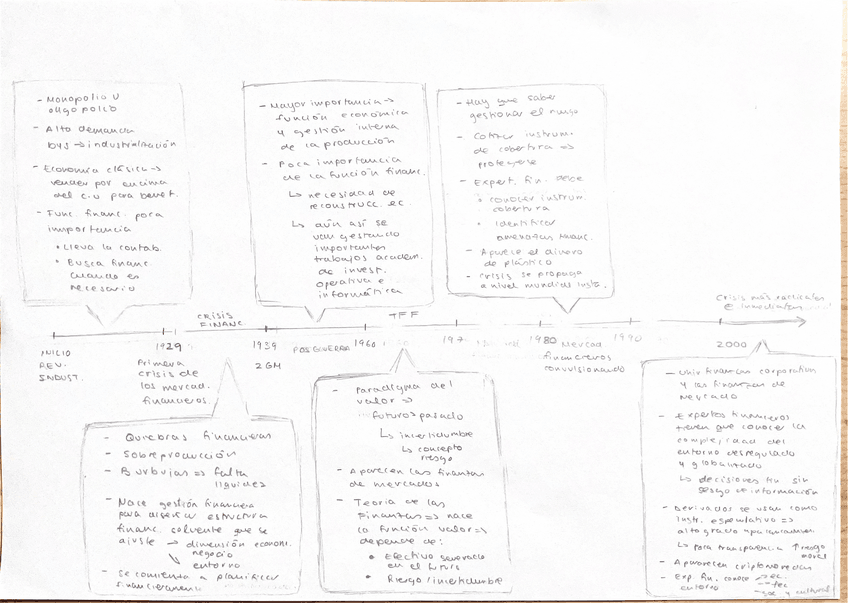 - Monopolio u
oligopolio
- Alta demanda
bys → industrialización
- Economía clásica →
vender por encima
del c.u para benef.
- Func. financ. poca
importancia
• Lleva la contab.
• Busca financ.
cuando es
necesario
- Mayor importancia →
función económica
y gestión interna
de la producción
- Poca importancia
de la función financ.
↳ necesidad de
reconstrucc. ec.
↳ aún así se
van gestando
importantes
trabajos academ.
de invest.
operativa e
informática
- Hay que saber
gestionar el riesgo
instrum.
de cobertura ⇒
protegerse
- Expert. fin. debe
• conocer instrum.
cobertura
• Identificar
amenazas financ.
- Aparece el dinero
de plástico
- Crisis se propaga
a nivel mundial
Crisis más radicales
e inmediatas
CRISIS
FINANC.
TFF
INICIO
REV.
INDUST.
1929
Primera
crisis de
los mercad.
financieros.
1939
2GM
POSGUERRA
1960
197
1980
Mercad
financieros
convulsionando
1990
2000
- Quiebras financieras
- Sobreproducción
- Burbujas ⇒ falta
liquidez
- Nace gestión financiera
para diseñar estructura
financ. solvente que se
ajuste → dimensión económ.
negocio
entorno
- Se comienza a planificar
financieramente
- Paradigma del
valor ⇒
futuro ≠ pasado
↳ incertidumbre
↳ concepto
riesgo
- Aparecen las finanzas
de mercados
- Teoría de las
finanzas ⇒ nace
la función valor ⇒
depende de:
• Efectivo generado
en el futuro
• Riesgo/incertidumbre
- Univ finanzas corporation
y las finanzas de
mercado
- Expertos financieros
tienen que conocer la
complejidad del
entorno desregulado
y globalizado
↳ decisiones fin sin
sesgo de información
- Derivados se usan como
instr. especulativo ⇒
alto grado apalancamiento
↳ poca transparencia ↑ riesgo
moral
- Aparecen criptomonedas
- Exp. fin. conoce → ec.
entorno → tec
→ soc y cultural